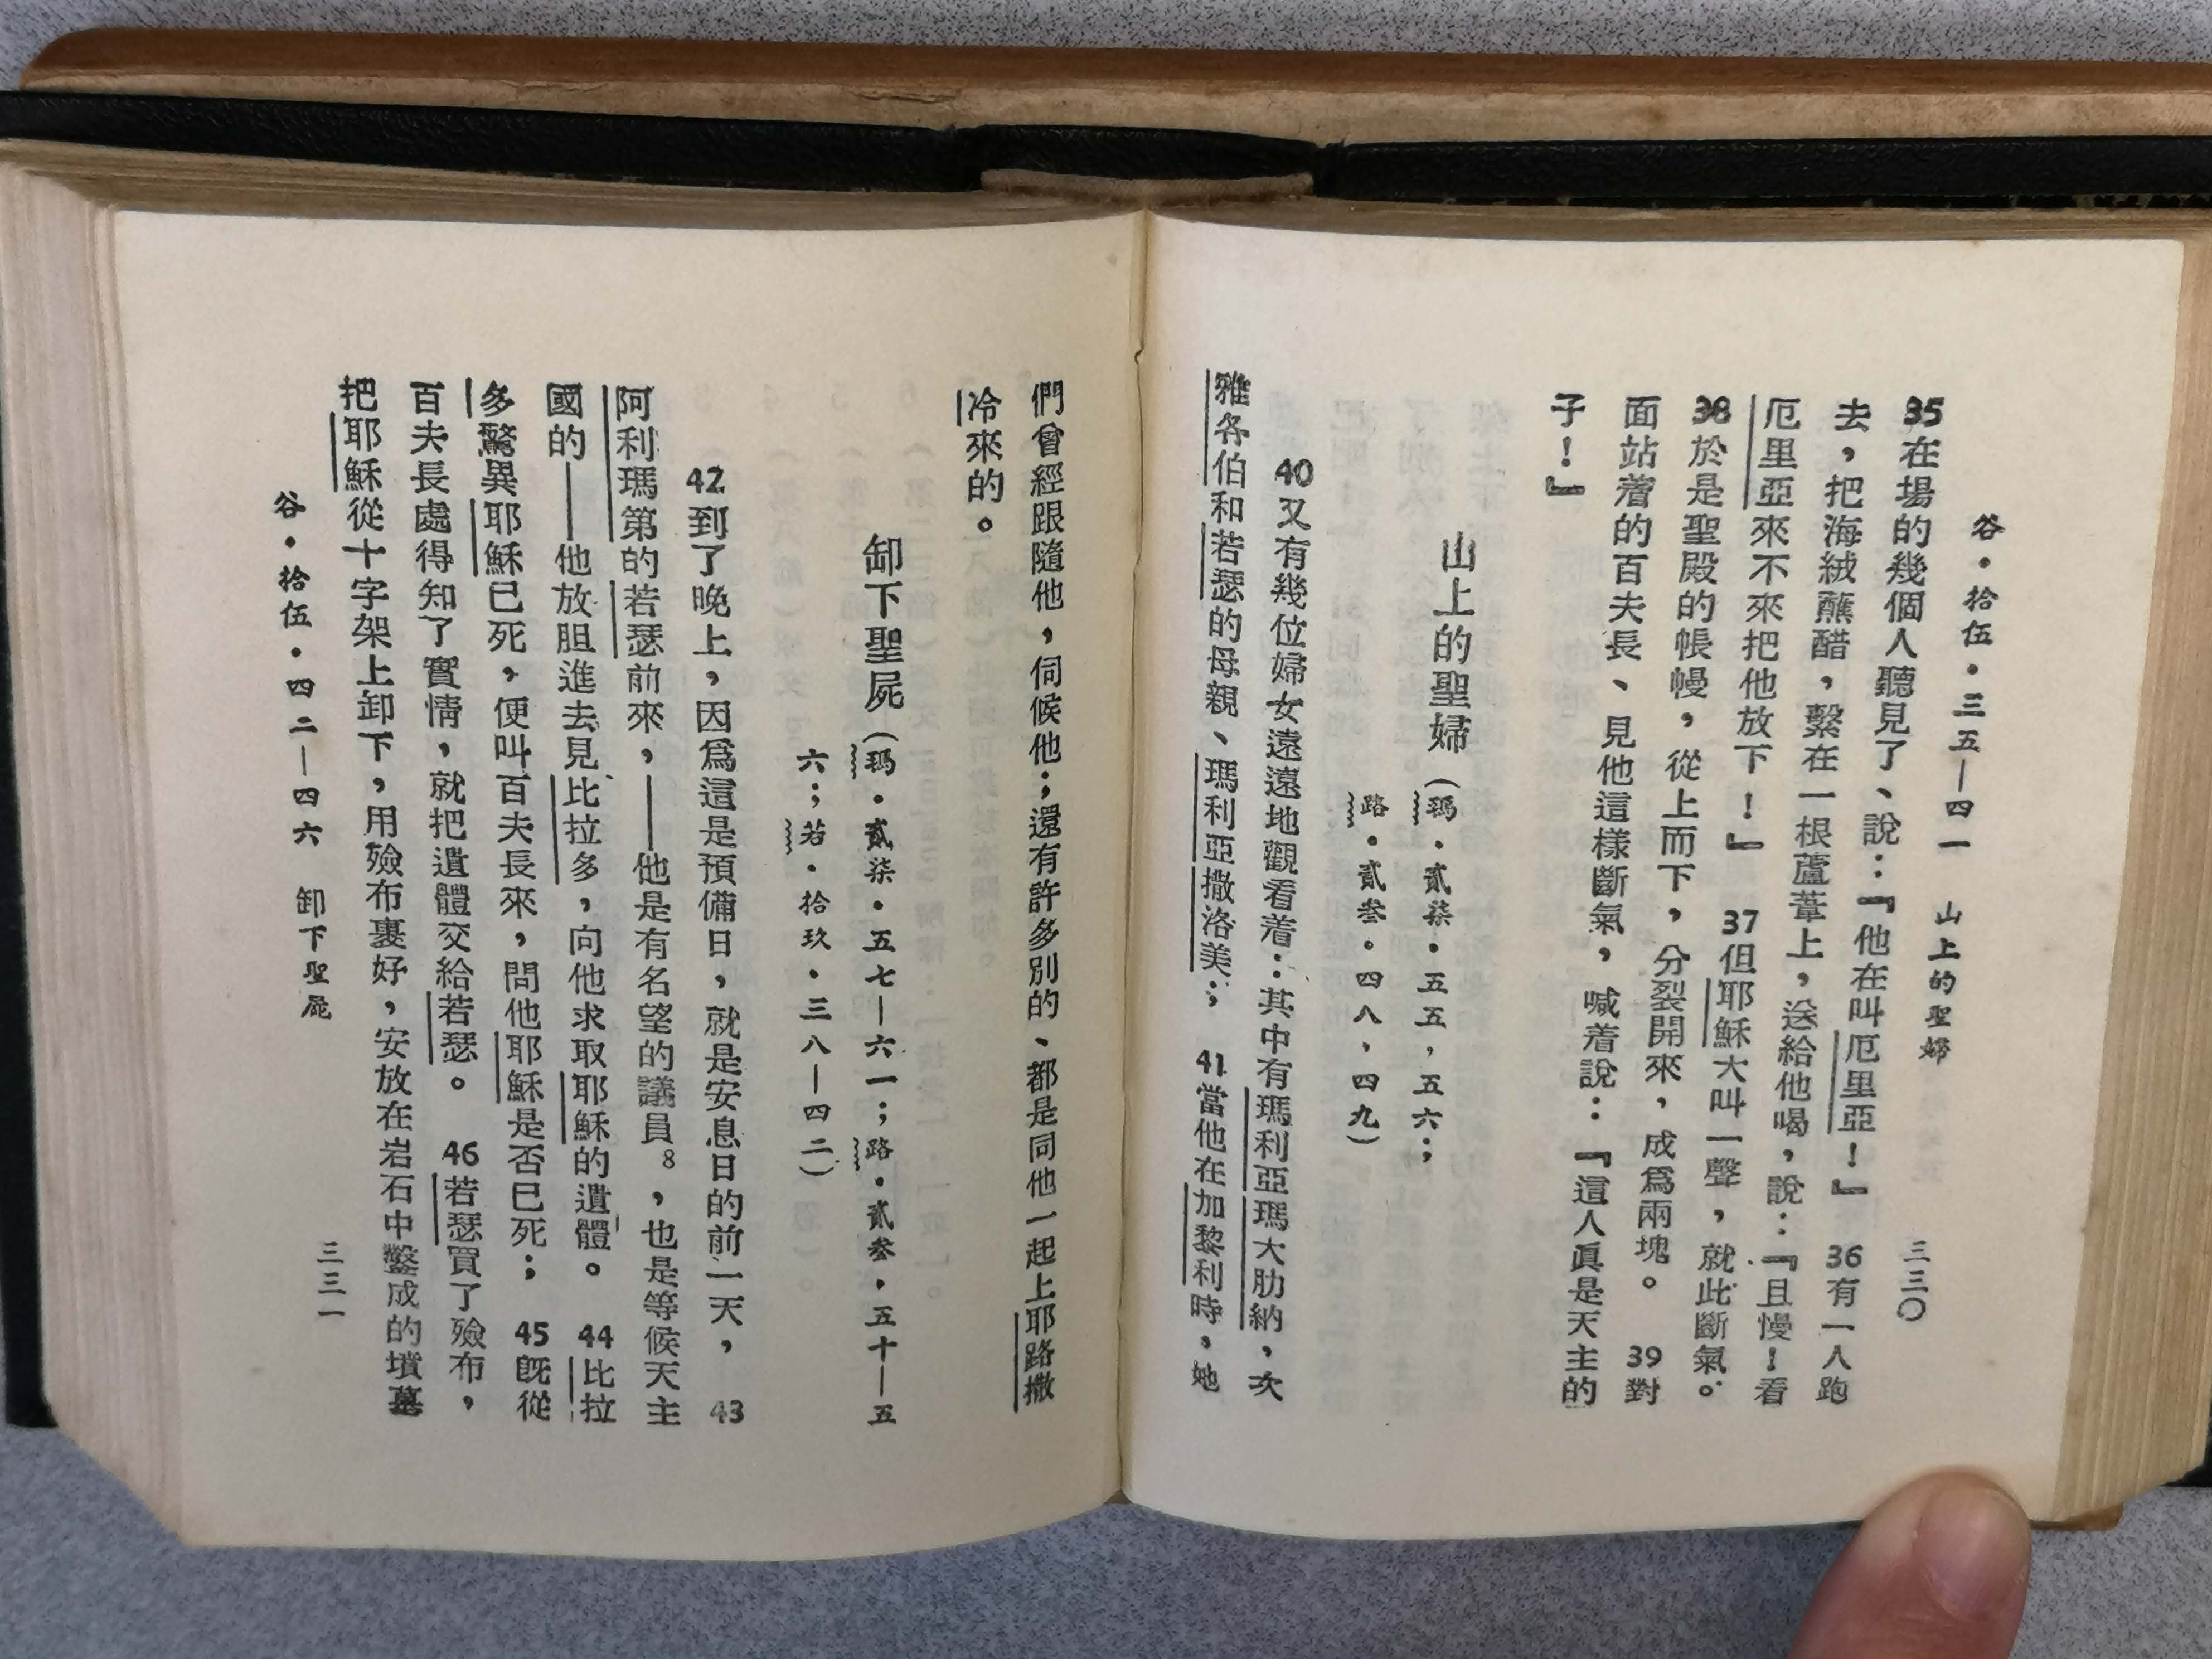 谷・拾伍・三五—四一 山上的聖婦 三三〇
35在場的幾個人聽見了、說：『他在叫厄里亞！』 36有一人跑
去，把海絨蘸醋，繫在一根蘆葦上，送給他喝，說：『且慢！看
厄里亞來不來把他放下！』 37但耶穌大叫一聲，就此斷氣。
38於是聖殿的帳幔，從上而下，分裂開來，成爲兩塊。 39對
面站着的百夫長、見他這樣斷氣，喊着說：『這人眞是天主的
子！』
山上的聖婦（瑪・貳柒・五五，五六；
路・貳叁・四八，四九）
40又有幾位婦女遠遠地觀看着：其中有瑪利亞瑪大肋納，次
雅各伯和若瑟的母親、瑪利亞撒洛美； 41當他在加黎利時，她
們曾經跟隨他，伺候他；還有許多別的、都是同他一起上耶路撒
冷來的。
卸下聖屍（瑪・貳柒・五七—六一；路・貳叁・五十—五
六；若・拾玖・三八—四二）
42到了晚上，因爲這是預備日，就是安息日的前一天， 43
阿利瑪第的若瑟前來，——他是有名望的議員8，也是等候天主
國的——他放胆進去見比拉多，向他求取耶穌的遺體。 44比拉
多驚異耶穌已死，便叫百夫長來，問他耶穌是否已死； 45旣從
百夫長處得知了實情，就把遺體交給若瑟。 46若瑟買了殮布，
把耶穌從十字架上卸下，用殮布裹好，安放在岩石中鑿成的墳墓
谷・拾伍・四二—四六 卸下聖屍 三三一